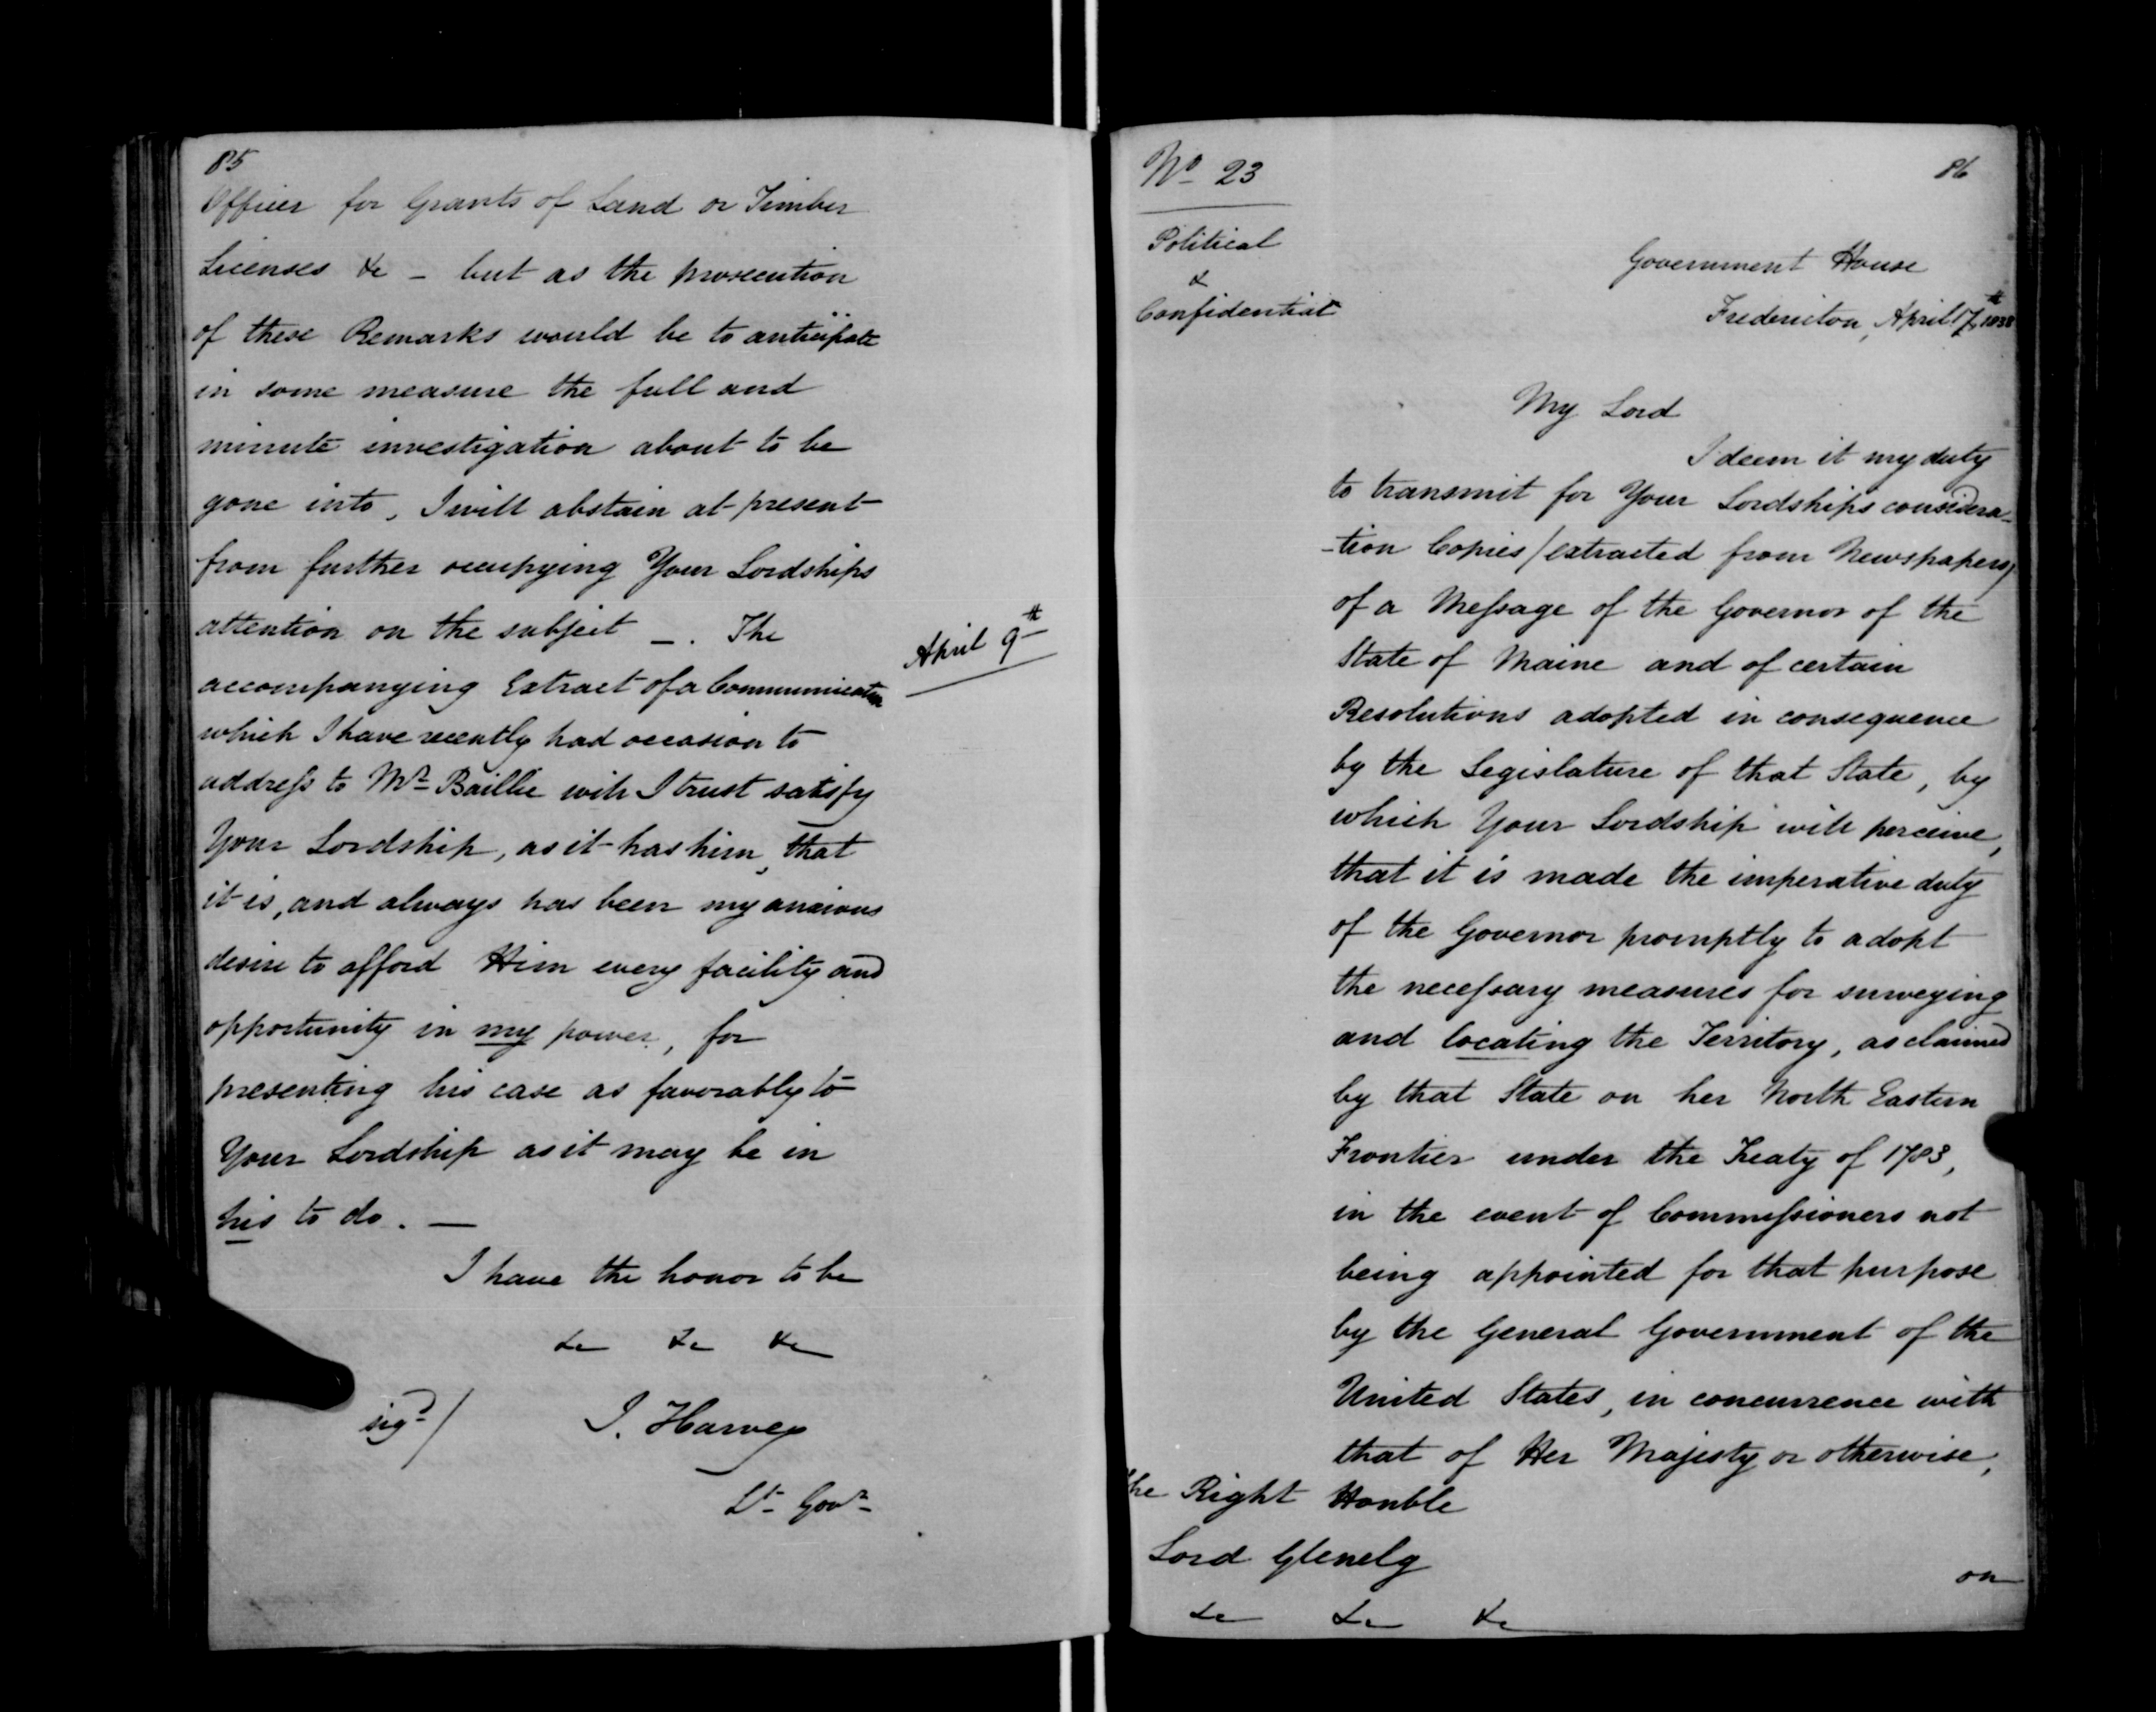 85
Officer for Grants of Land or Timber
Licenses &c – but as the prosecution
of these Remarks would be to anticipate
in some measure the full and
minute investigation about to be
gone into, I will abstain at present
from further occupying Your Lordships
attention on the subject –. The
accompanying Extract of a Communication
April 9th
which I have recently had occasion to
address to Mr Baillie will I trust satisfy
Your Lordship, as it has him, that
it is, and always has been my anxious
desire to afford Him every facility and
opportunity in my power, for
presenting his case as favorably to
Your Lordship as it may be in
his to do. —
I have the honor to be
&c &c &c
sigd/ J. Harvey
Lt Govr
No 23
86
Political
&
Confidential
Government House
Fredericton, April 17th 1838
My Lord
I deem it my duty
to transmit for Your Lordships considera-
-tion Copies/extracted from Newspapers/
of a Message of the Governor of the
State of Maine and of certain
Resolutions adopted in consequence
by the Legislature of that State, by
which Your Lordship will perceive,
that it is made the imperative duty
of the Governor promptly to adopt
the necessary measures for surveying
and locating the Territory, as claimed
by that State on her North Eastern
Frontier under the Treaty of 1783,
in the event of Commissioners not
being appointed for that purpose
by the General Government of the
United States, in concurrence with
that of Her Majesty or otherwise,
The Right Honble
Lord Glenelg
&c &c &c
on